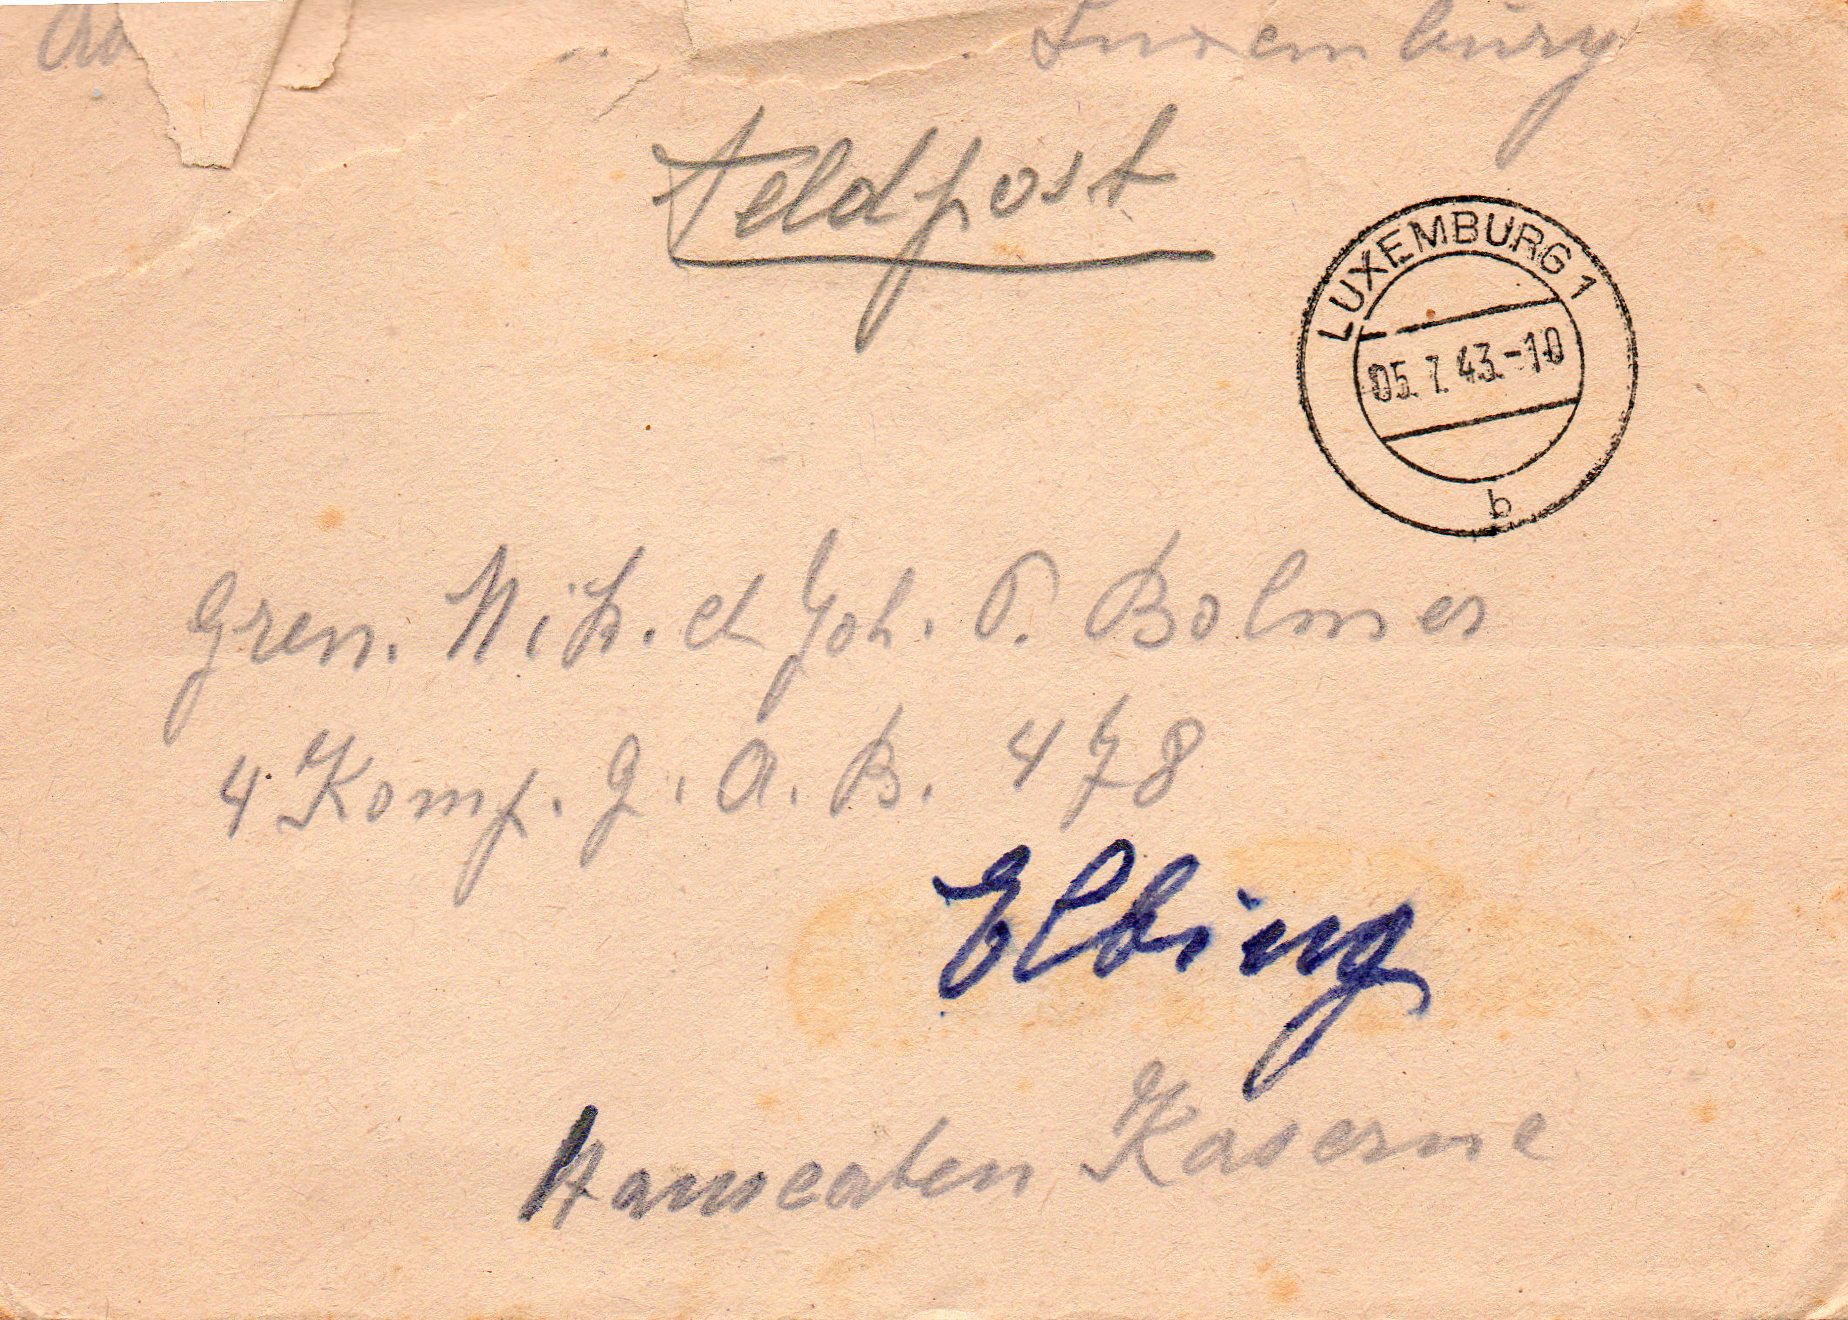 Luxemburg
Feldpost
LUXEMBURG 1
05.7.43.-10
b
Gren. Nik. et Joh. P. Bolmer
4 Komp. G. A. B. 478
Elbing
Hanseaten Kaserne